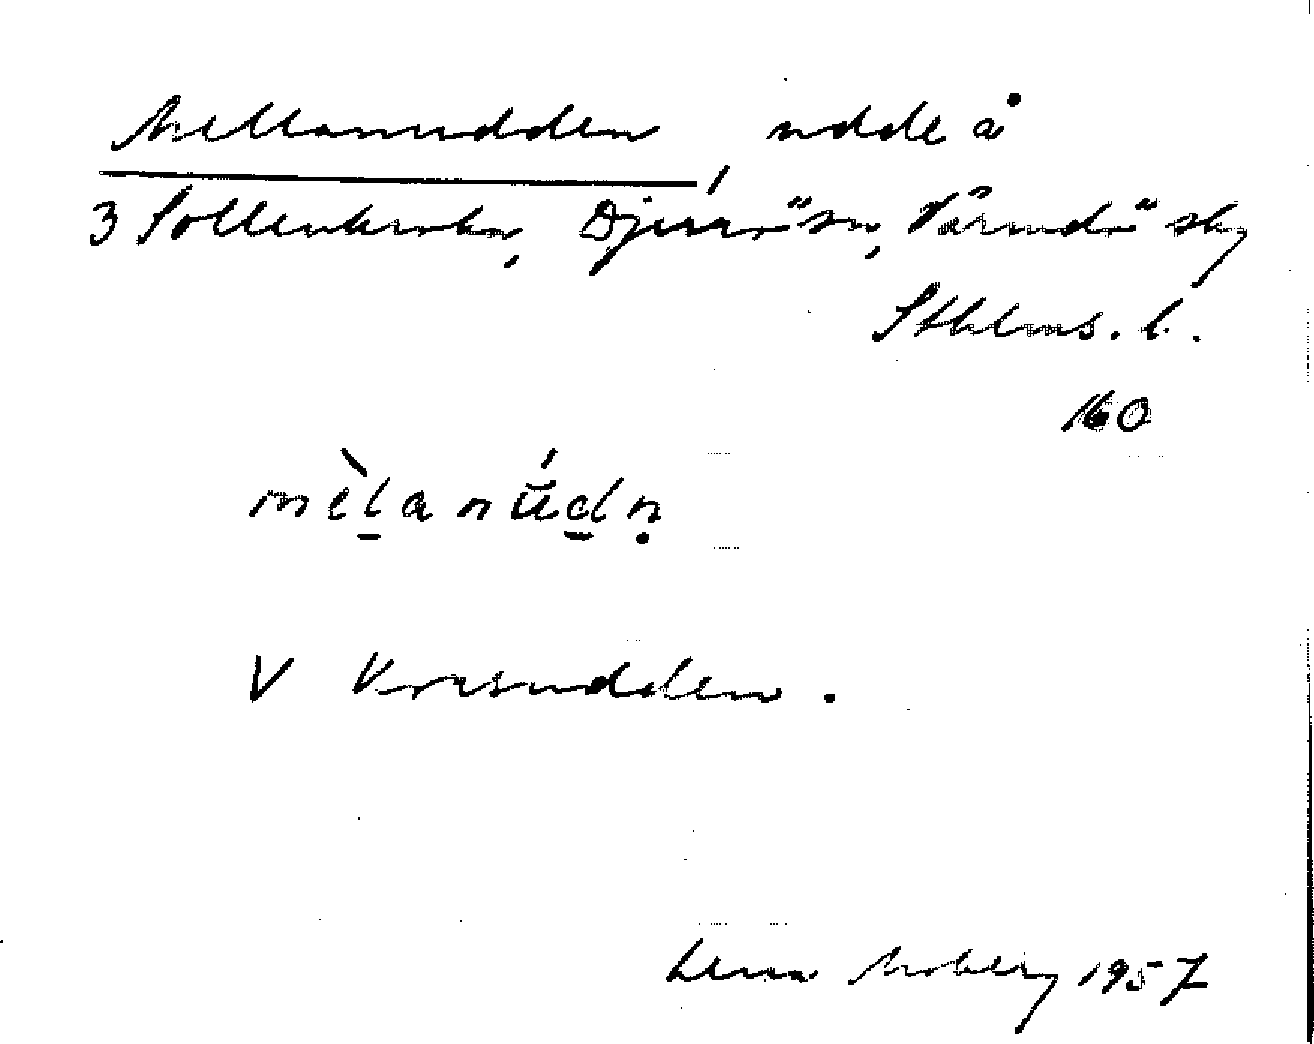 Mellanudden, udde å
3 Sollenkroka, Djurö sn, Värmdö skg
Sthlms. l.
160
mèl̲anŭ́d̲ṇ
V Vrasudden.
Lena Moberg 1957